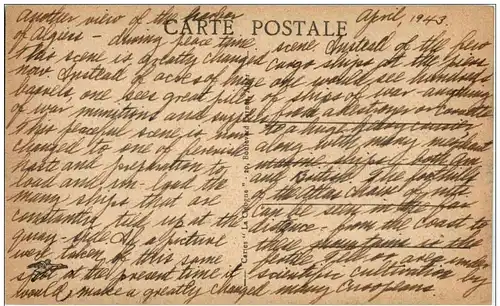 Another view of the harbor
of Algiers - during peace time
this scene is greatly changed
now. Instead of acres of huge
barrels, one sees great piles
of war munitions and supplies
This peaceful scene is now
changed to one of
haste and preparation to
load and un-load the
many ships that are
constantly tied up at the
quay-side. If a picture
were taken of this same
spot at the present time it
would make a greatly changed
CARTE POSTALE
April, 1943.
scene. Instead of the few
cargo ships at the piers
one would see hundreds
of ships of war - anything
from a destroyer or corvette
to a huge
along with many merchant
ships of both Am.
and British. The foothills
of the Atlas chain of mts
can be seen in the far
distance - from the coast to
these mountains is the
fertile area under
scientific cultivation by
many Europeans.